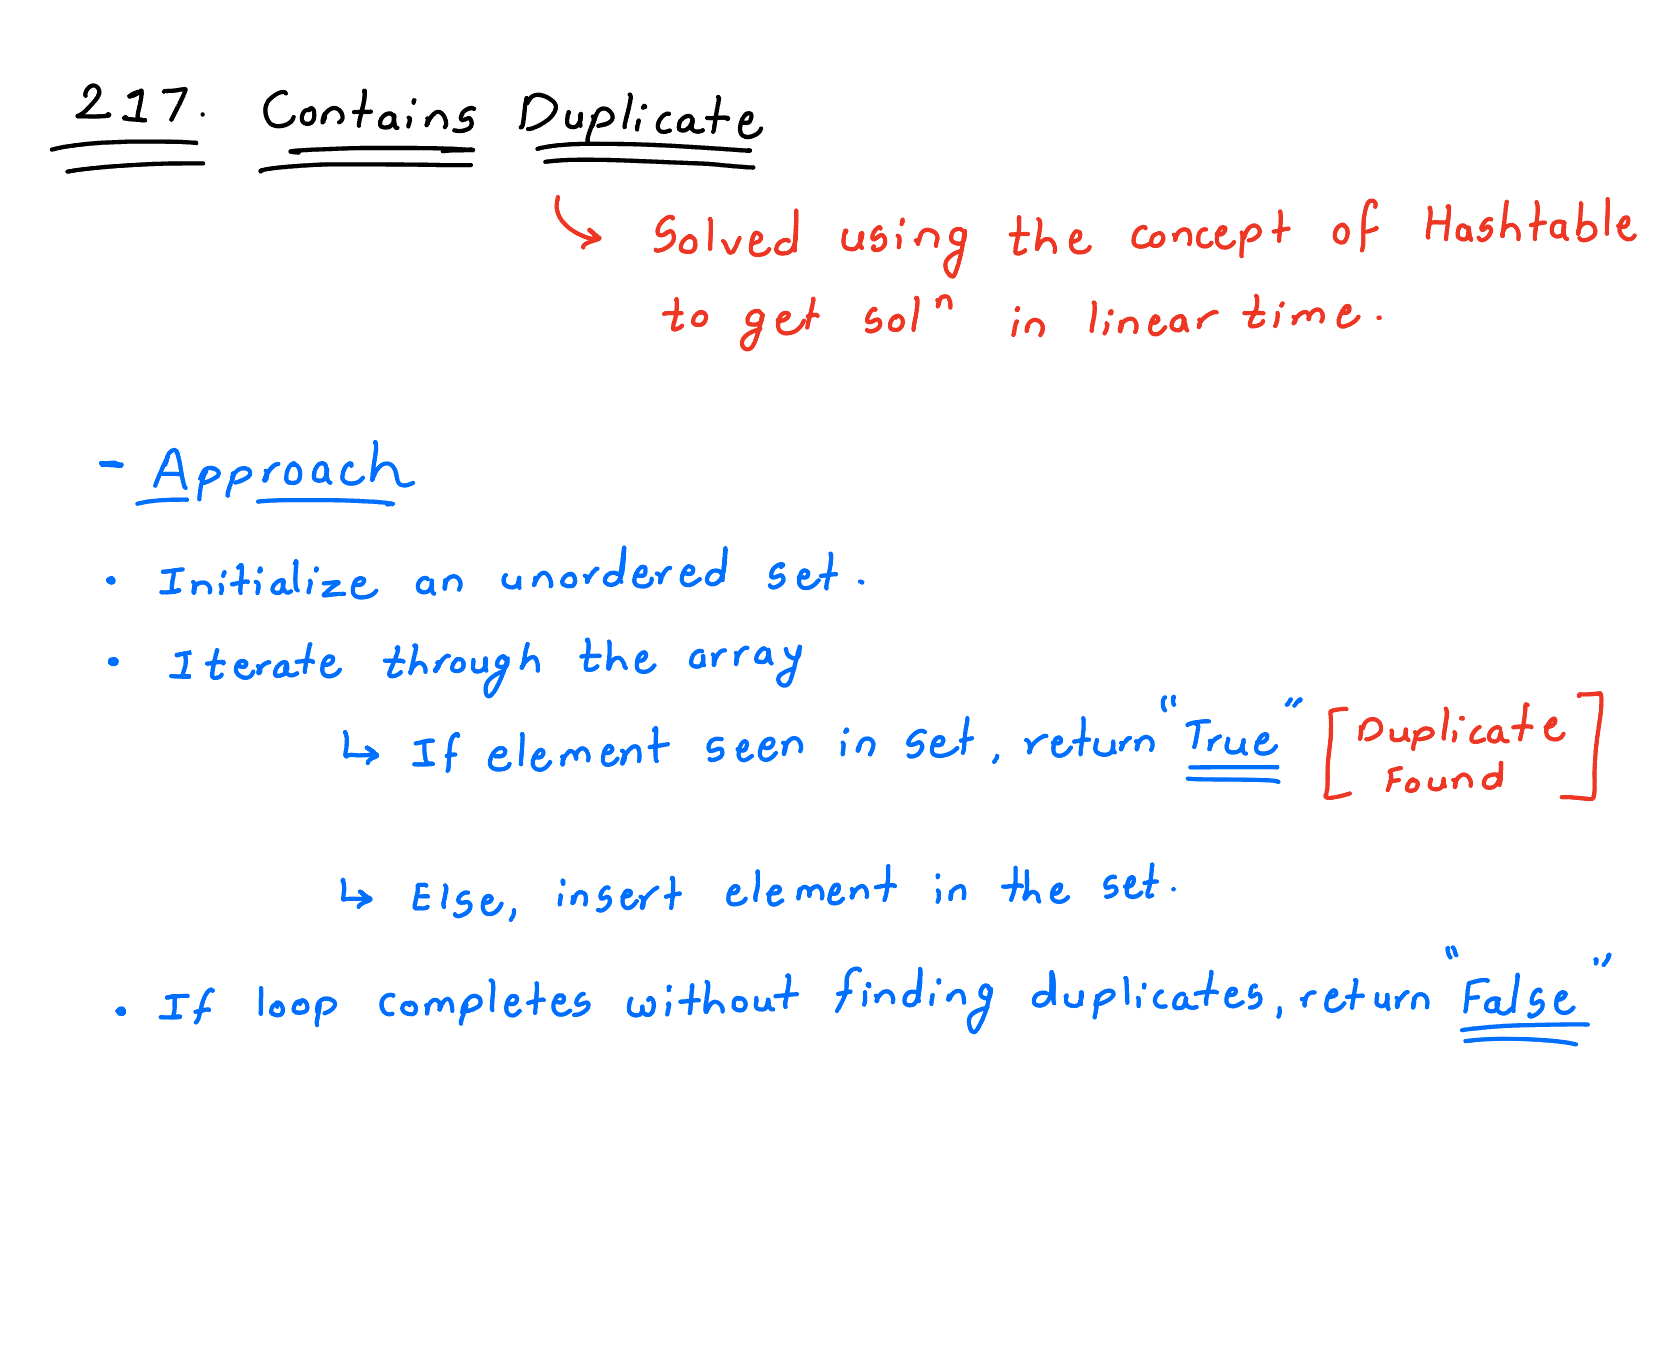 217. Contains Duplicate
↳ Solved using the concept of Hashtable
to get solⁿ in linear time.
- Approach
• Initialize an unordered set.
• Iterate through the array
↳ If element seen in set, return "True" [Duplicate
Found]
↳ Else, insert element in the set.
• If loop completes without finding duplicates, return "False"